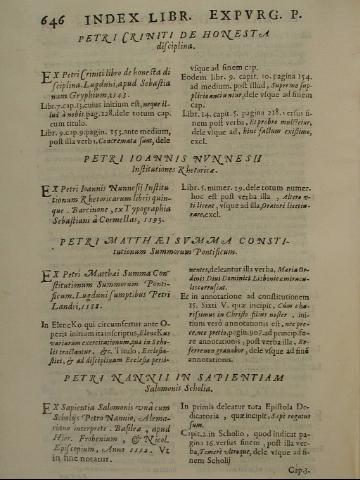 646 INDEX LIBR. EXPVRG. P.
PETRI CRINITI DE HONESTA
disciplina.
EX Petri Criniti libro de honesta di
sciplina. Lugduni, apud Sebastia
num Gryphium, 1543.
Lib. 7. cap. 13. cuius initium est, neque il-
lud à nobis pag. 128. dele totum cap.
cum titulo.
Lib. 9. cap. 9. pagin. 153. ante medium,
post illa verba, Concremata sunt, dele
vsque ad finem cap.
Eodem lib. 9. capit. 10. pagina 154.
ad medium, post illud, Supremo sup-
plicio
dele vsque ad finem
cap.
Lib. 24. capit. 5. pagina 218. versus fi-
nem post verba, Et probe
dele vsque ad, hinc fultum existimo,
excl.
PETRI IOANNIS NVNNESII
Institutiones Rhetoricæ.
EX Petri Ioannis Nunnesii Institu
tionum Rhetoricarum libris quin-
que. Barcinone, ex Typographia
Sebastiani à Cormellas, 1593.
Lib. 5. numer. 19. dele totum numer.
hoc est post verba illa,
vsque ad illa, Oratori
excl.
PETRI MATTHÆI SVMMA CONSTI-
tutionum Summorum Pontificum.
EX Petri Matthæi Summa Con
stitutionum Summorum Ponti-
ficum. Lugduni sumptibus Petri
Landri, 1588.
In Elencko qui circumfertur ante O-
peris initium
Elenckus
variarum exercitationum, quæ in Scho-
lis tractantur. &c. Titulo, Ecclesia-
stici, & ad disciplinam Ecclesiæ
deleantur illa verba, Maria
Dominici
Et in annotatione ad constitutionem
25. Sixti V. quæ incipit, Cùm
in Christo filius noster, ini-
tium verò annotationis est,
pagin. 907. ad princip.
annotationis, post verba illa,
dele vsque ad finem
annotationis.
PETRI NANNII IN SAPIENTIAM
Salomonis Scholia.
EX Sapientia Salomonis vnà cum
Scholijs Petro Nannio, Alcma-
riano interprete. Basileæ, apud
Hier. Frobenium, & Nicol.
Episcopium, Anno 1552. Vt
in fine notatur.
In primis deleatur tota Epistola De-
dicatoria, quæ incipit, Sæpè rogatus
sum.
Capit. 2. in Scholio, quod indicat pa-
gina 16. versus finem, post illa ver-
ba, Temerè
dele vsque ad fi-
nem Scholij
Cap. 3.